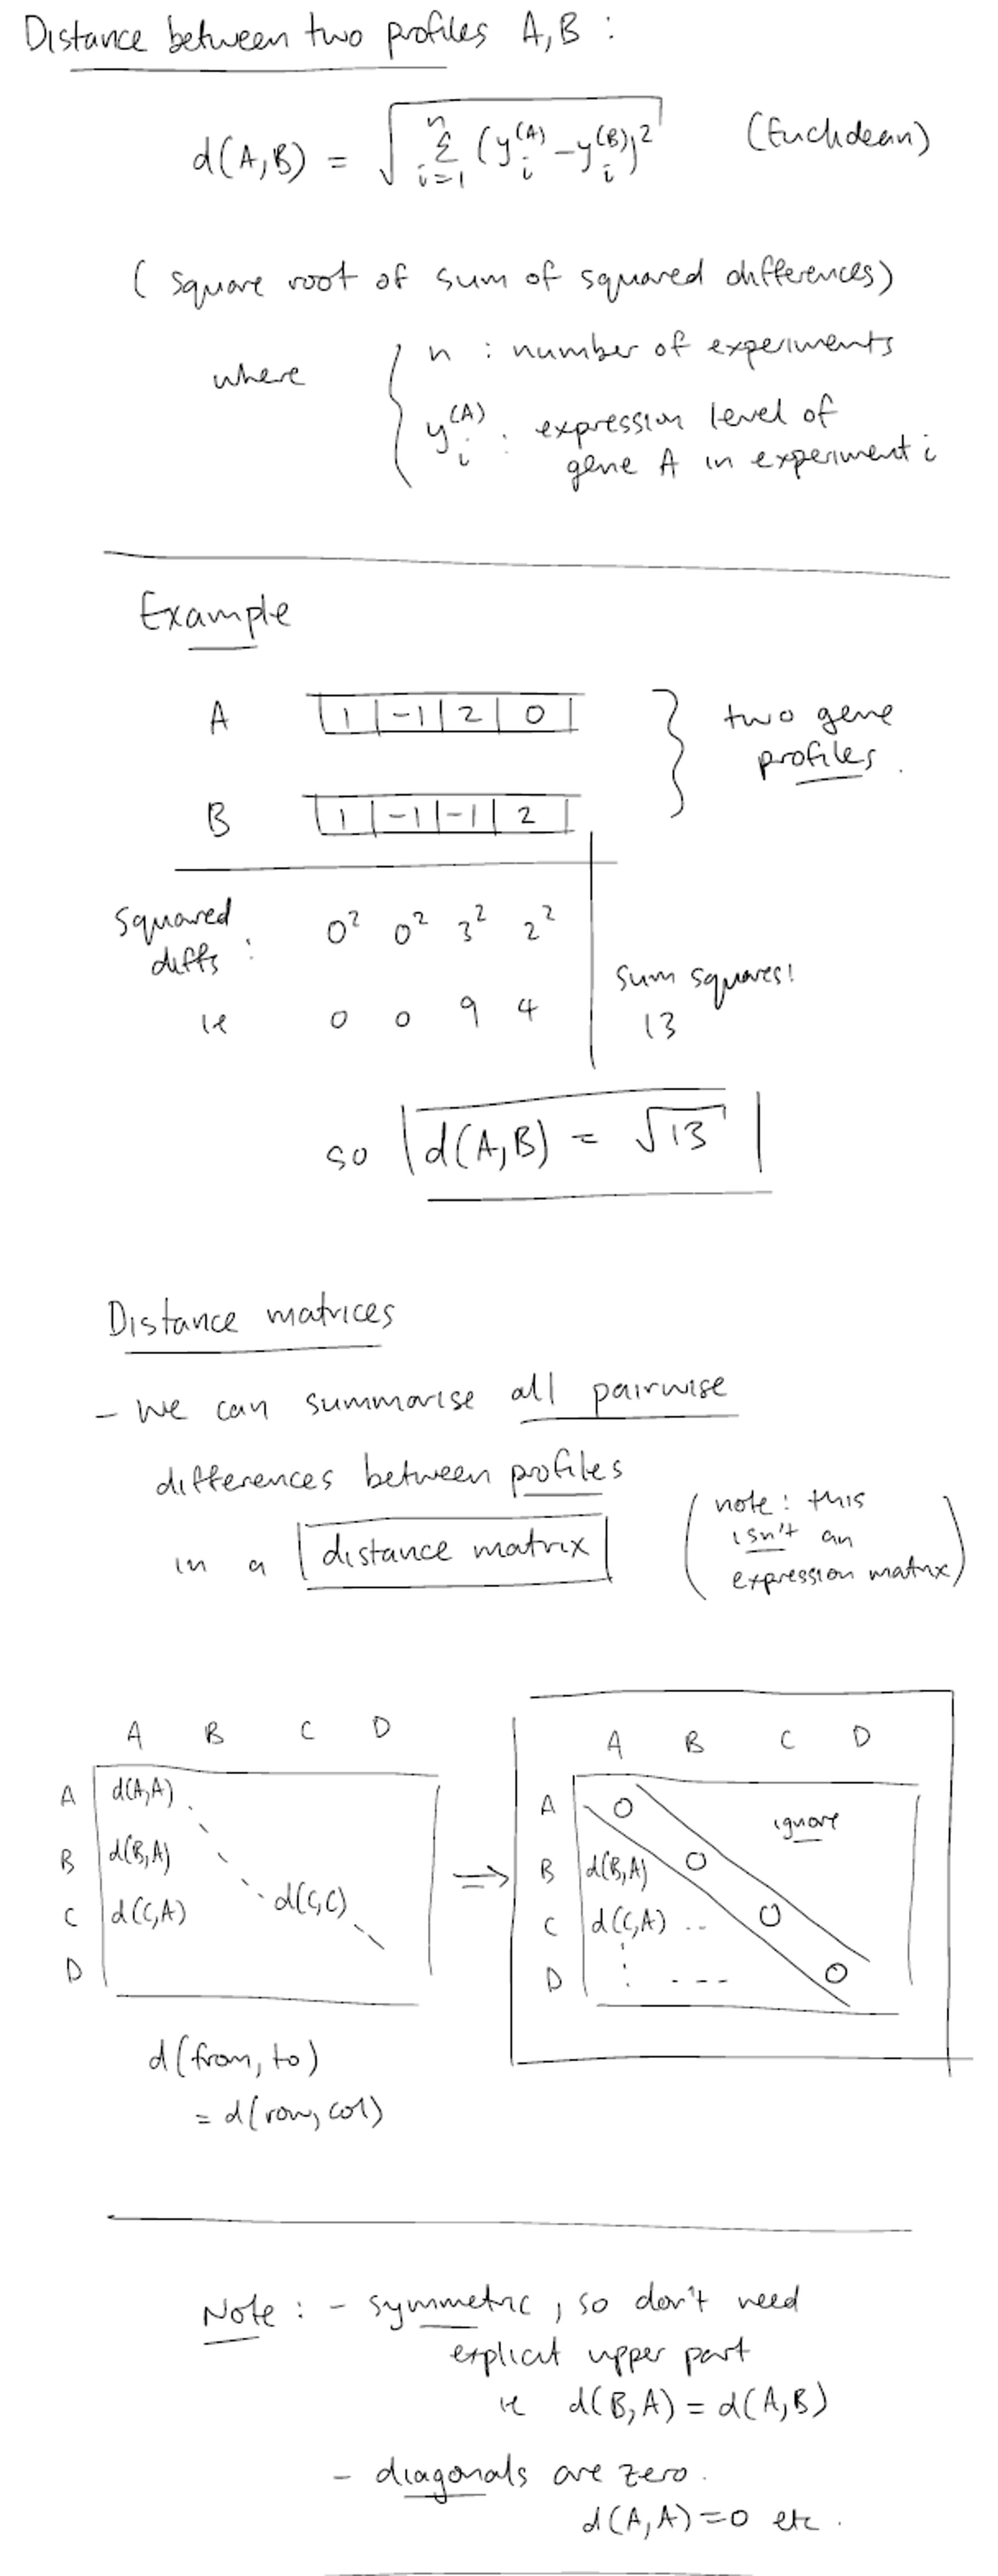 Distance between two profiles A,B :
d(A,B) = √ Σ_{i=1}^{n} (y_i^(A) - y_i^(B))² (Euclidean)
( square root of sum of squared differences)
where { n : number of experiments
y_i^(A) : expression level of
gene A in experiment i
Example
A | 1 | -1 | 2 | 0 |
B | 1 | -1 | -1 | 2 |
} two gene
profiles.
Squared
diffs :
0² 0² 3² 2²
ie 0 0 9 4
sum squares!
13
so d(A,B) = √13
Distance matrices
- we can summarise all pairwise
differences between profiles
in a distance matrix
(note : this
isn't an
expression matrix)
A B C D
A d(A,A)
B d(B,A)
C d(C,A) d(C,C)
D
⇒
A B C D
A 0 ignore
B d(B,A) 0
C d(C,A) .. 0
D : --- 0
d(from, to)
= d(row, col)
Note : - symmetric, so don't need
explicit upper part
ie d(B,A) = d(A,B)
- diagonals are zero.
d(A,A)=0 etc.